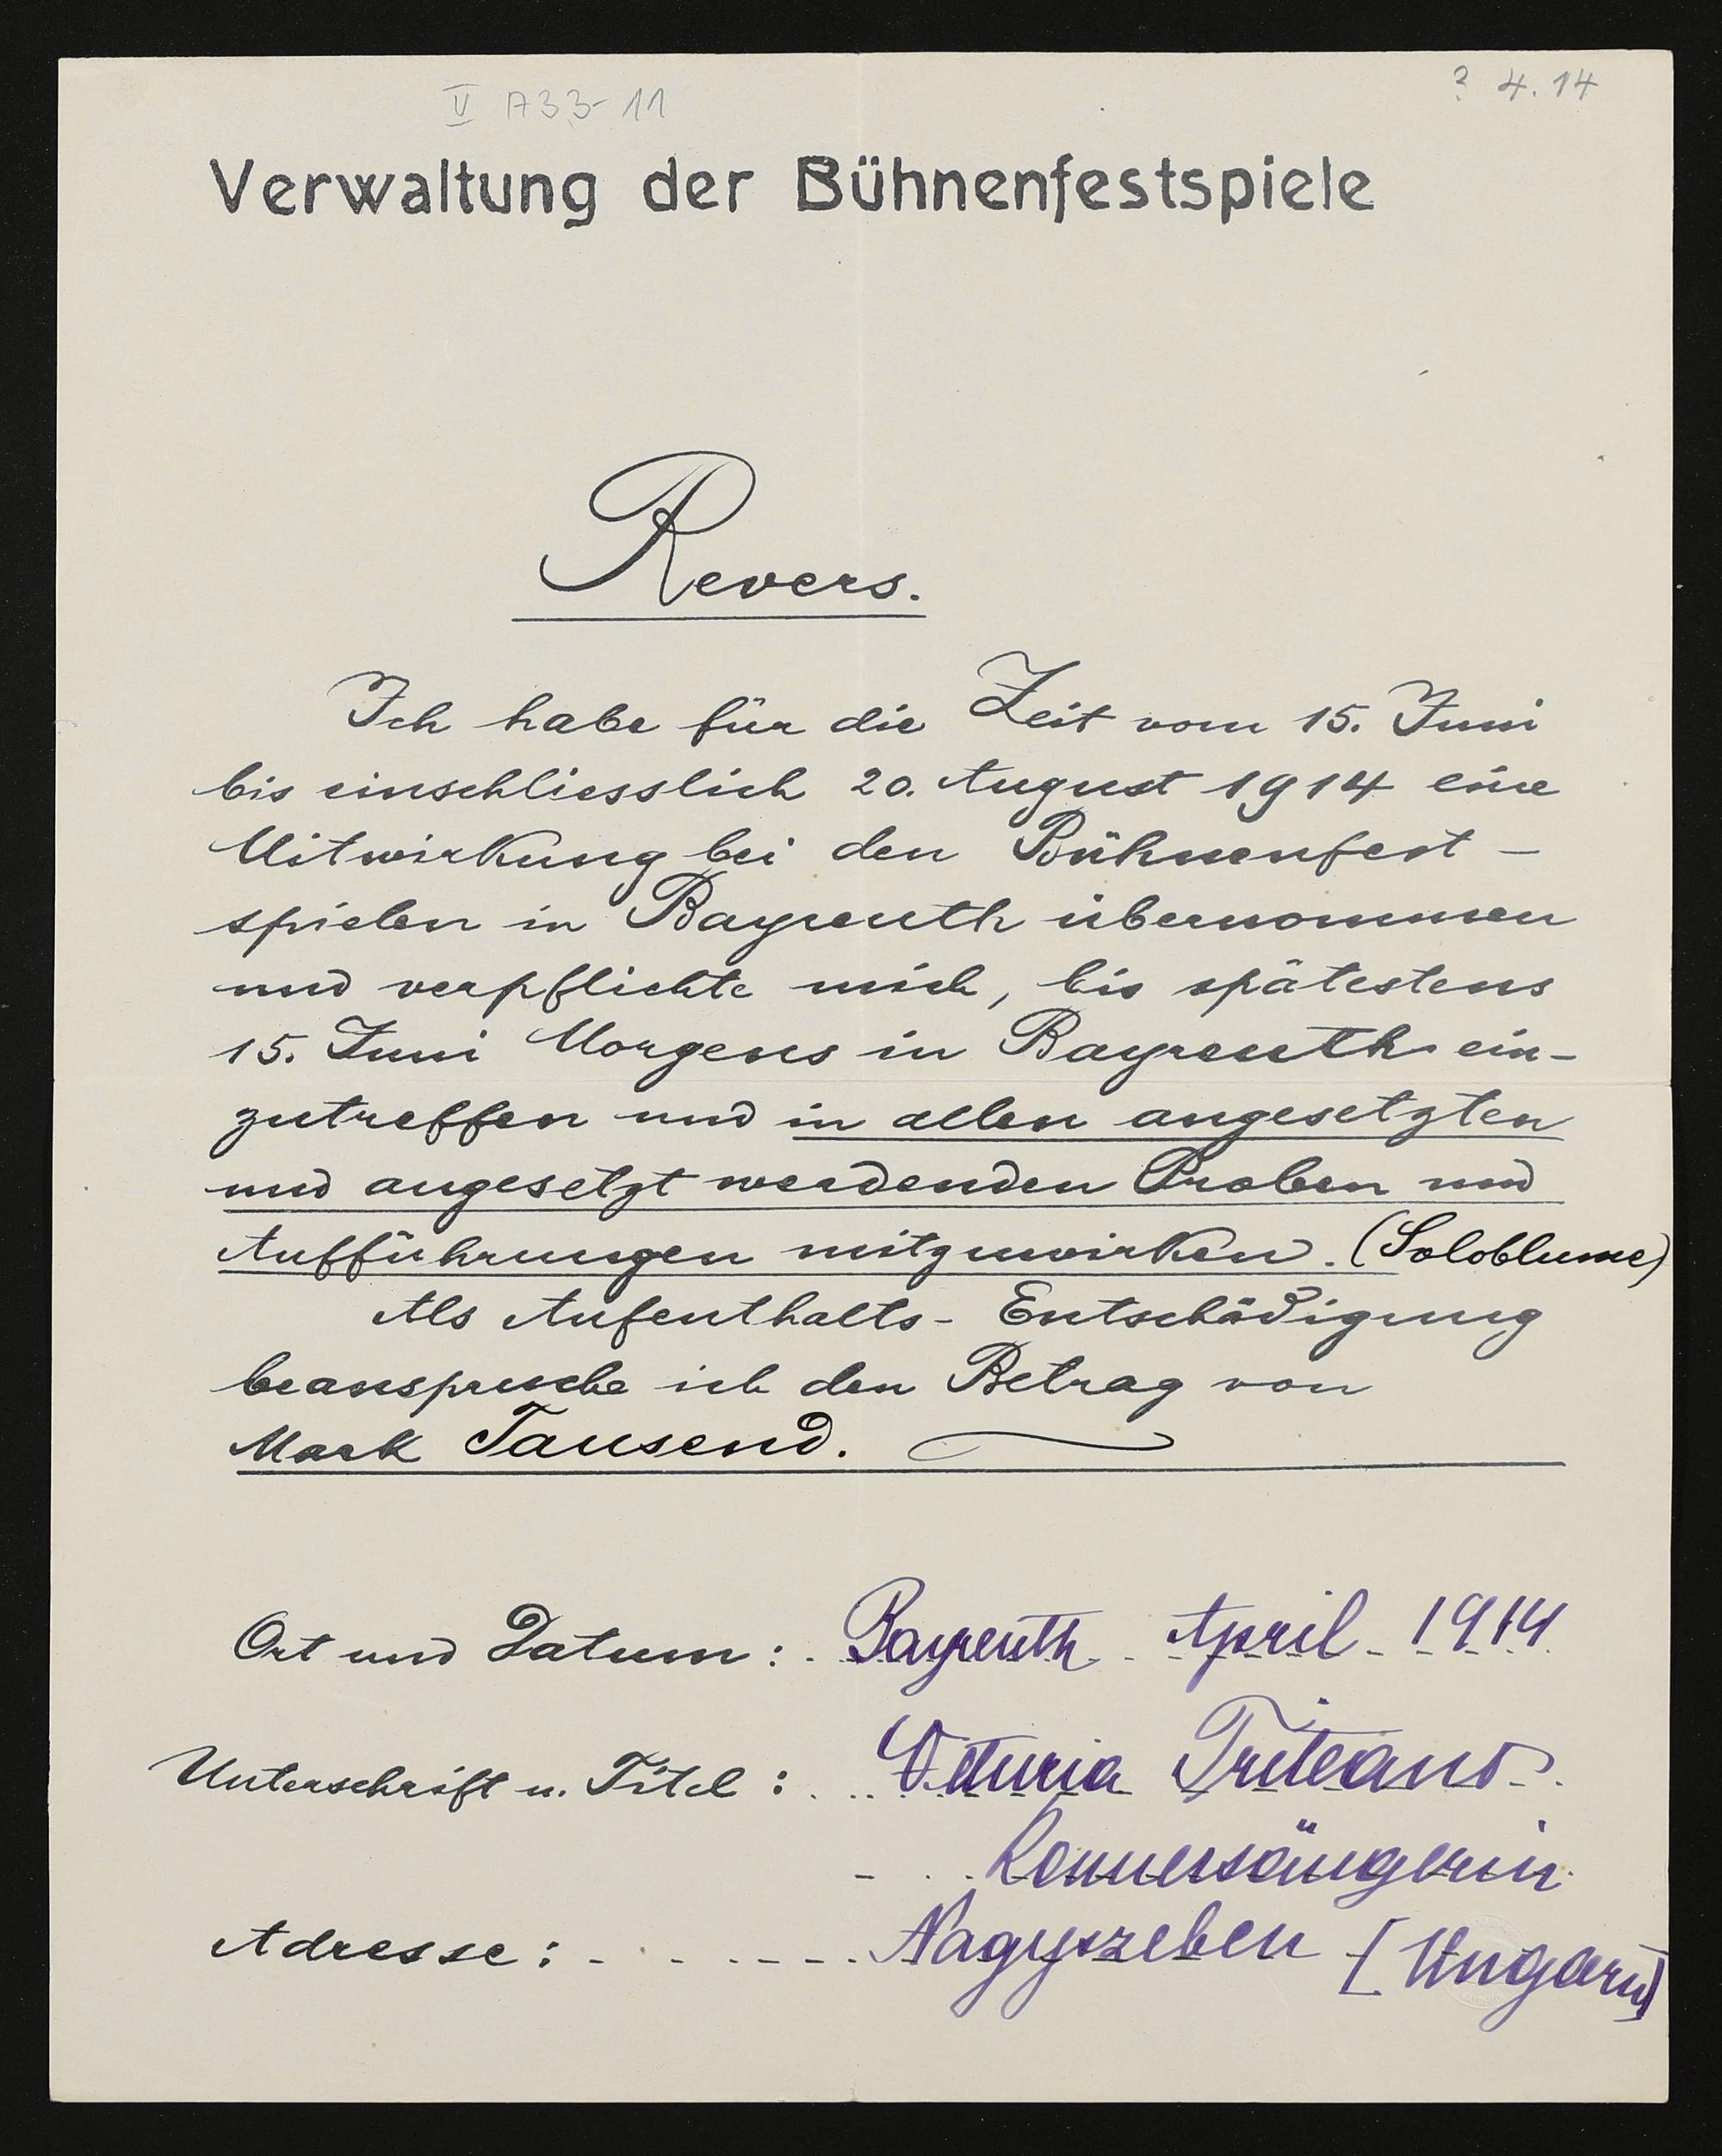 V A33-11
? 4.14
Verwaltung der Bühnenfestspiele
Revers.
Ich habe für die Zeit vom 15. Juni
bis einschliesslich 20. August 1914 eine
Mitwirkung bei den Bühnenfest-
spielen in Bayreuth übernommen
und verpflichte mich, bis spätestens
15. Juni Morgens in Bayreuth ein-
zutreffen und in allen angesetzten
und angesetzt werdenden Proben und
Aufführungen mitzuwirken. (Soloblume)
Als Aufenthalts-Entschädigung
beanspruche ich den Betrag von
Mark Tausend.
Ort und Datum: Bayreuth April 1914
Unterschrift u. Titel: Veturia Triteanu
Konzertsängerin
Adresse: Nagyszeben [Ungarn]